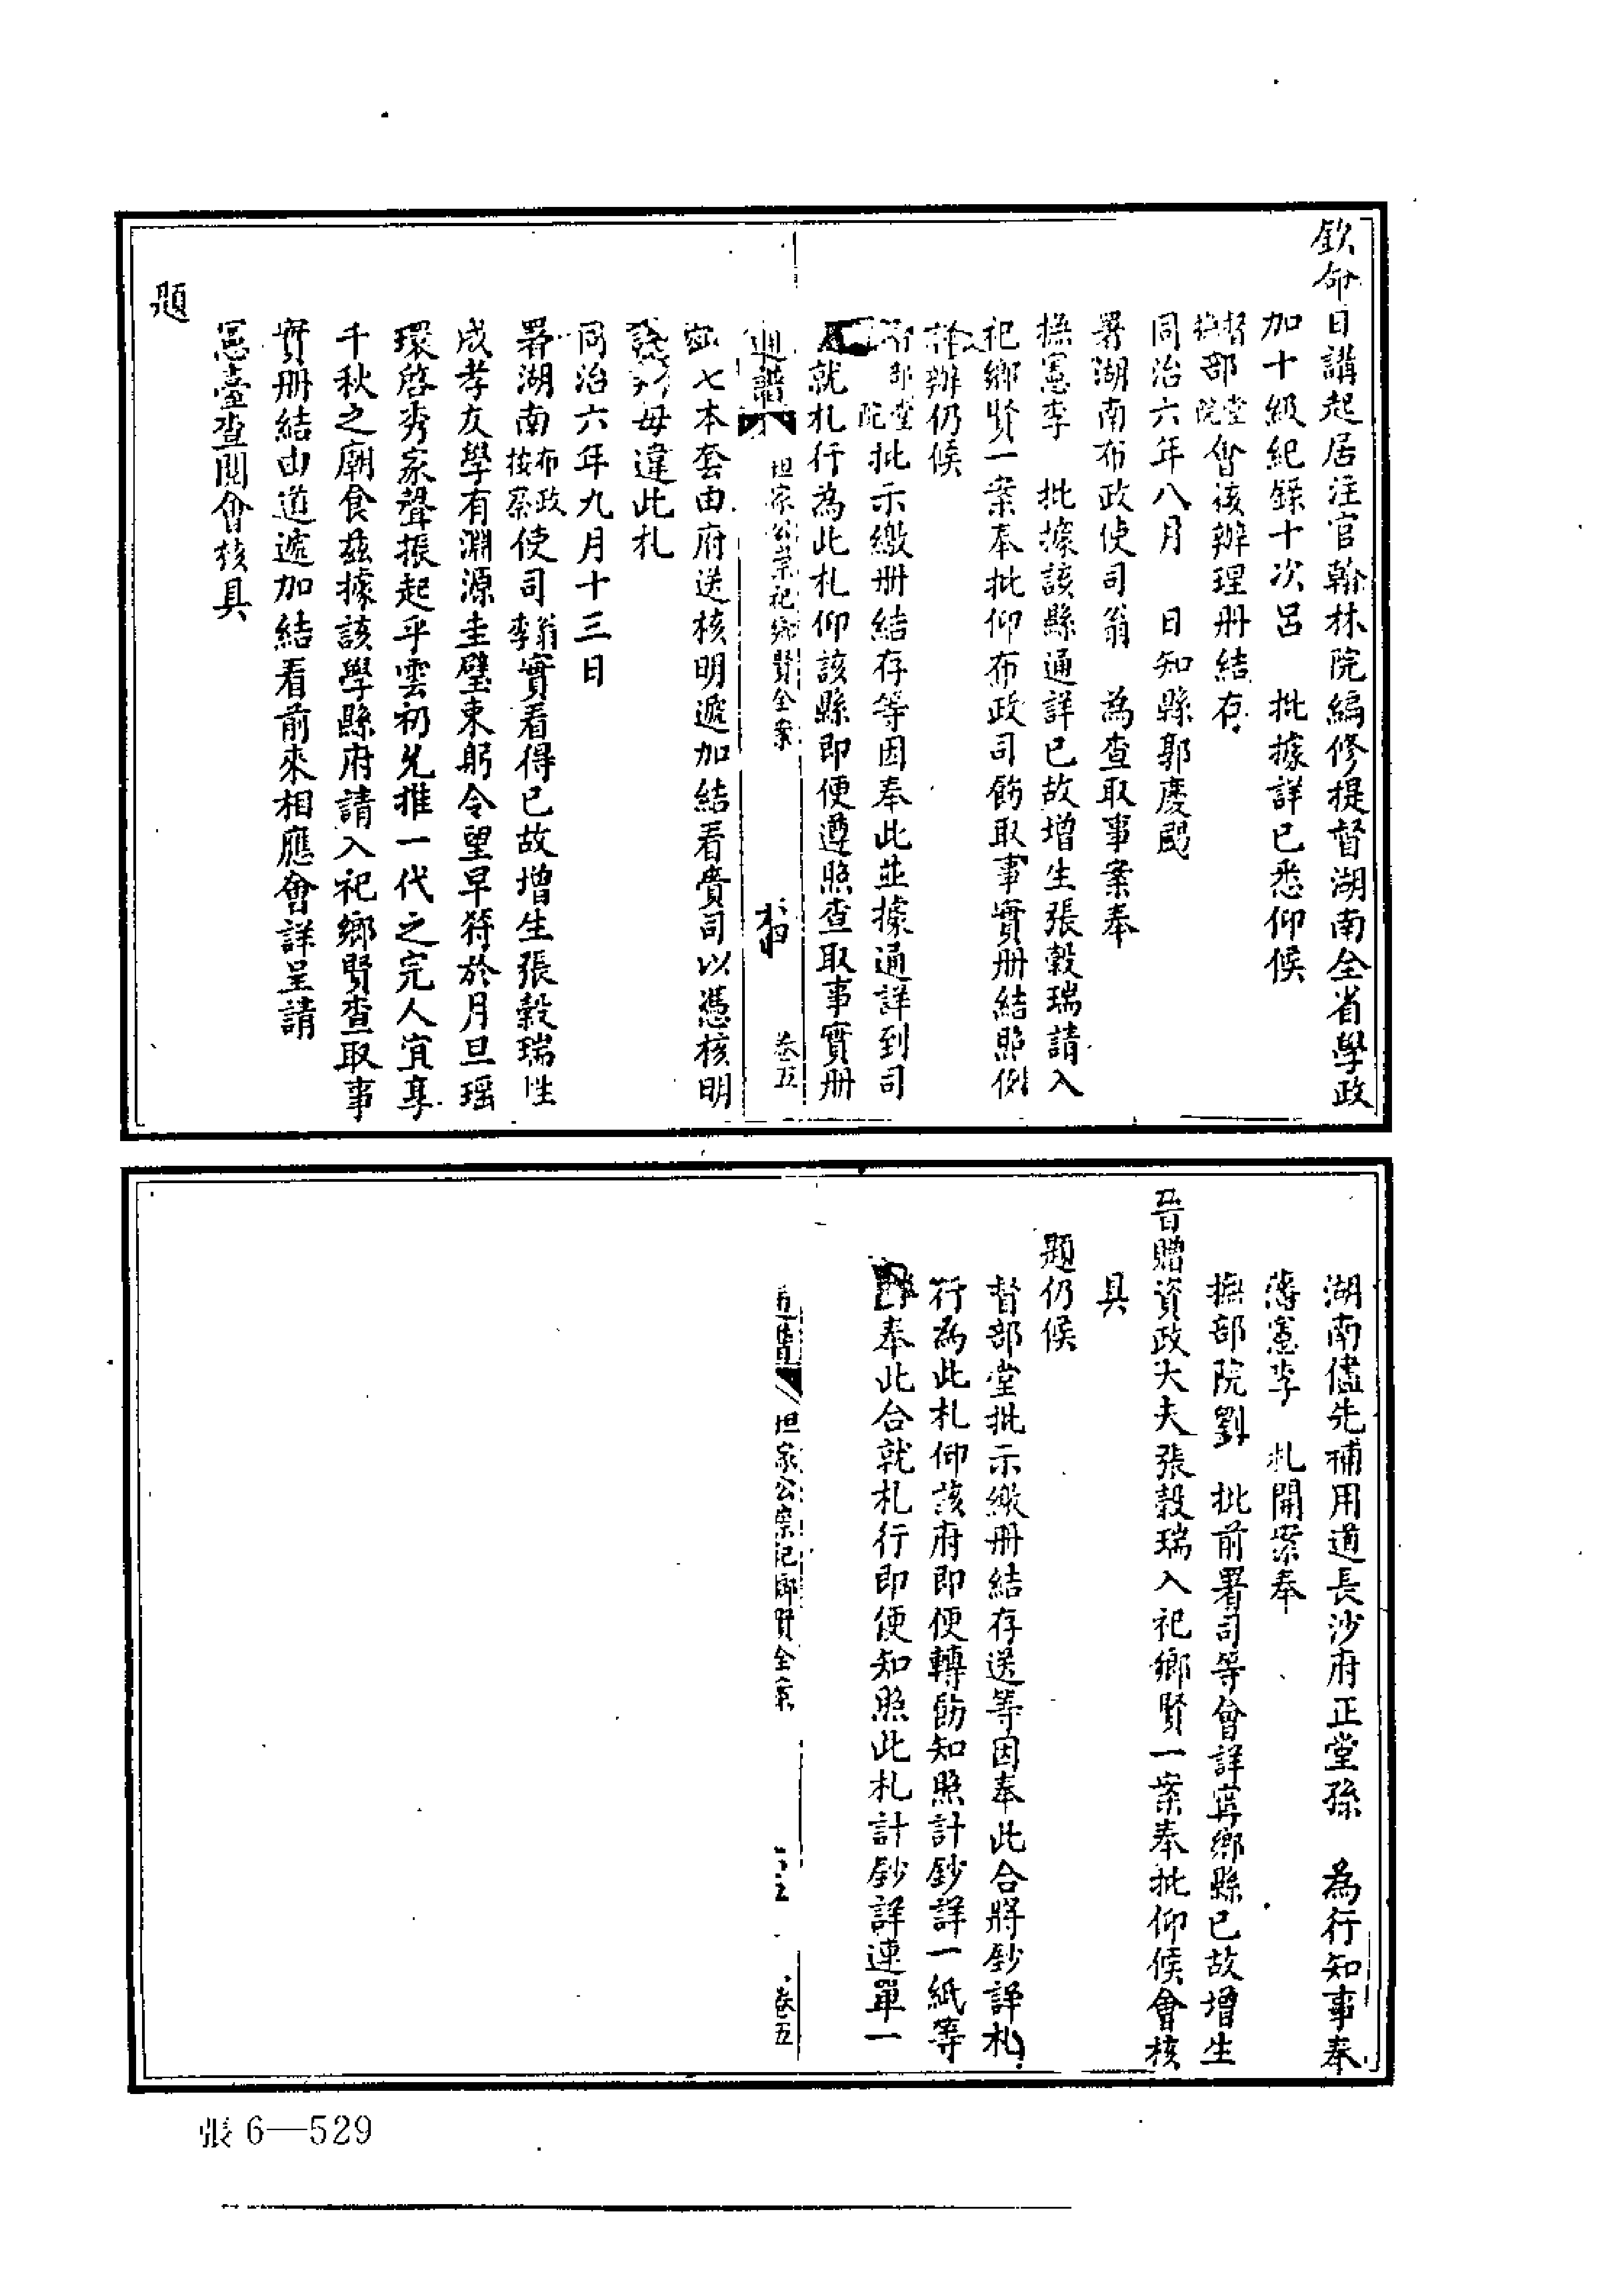 欽命日講起居注官翰林院編修提督湖南全省學政
加十級紀錄十次呂　批據詳已悉仰候
督部堂撫部院會該辦理册結存
同治六年八月　日知縣郭慶颺
署湖南布政使司翁　為查取事案奉
撫憲李　批據該縣通詳已故增生張穀瑞請入
祀鄉賢一案奉批仰布政司飭取事實册結照例
詳辦仍候
部堂院批示繳册結存等因奉此並據通詳到司
就札行為此札仰該縣即便遵照查取事實册
坦家公崇祀鄉賢全案
卷五
七本套由府送核明遞加結看賫司以憑核明
毋違此札
同治六年九月十三日
署湖南布政按察使司翁李實看得已故增生張穀瑞性
成孝友學有淵源圭璧束躬令望早符於月旦瑶
環啓秀家聲振起乎雲礽允推一代之完人宜享
千秋之廟食茲據該學縣府請入祀鄉賢查取事
實册結由道遞加結看前來相應會詳呈請
憲臺查閱會核具
題
湖南儘先補用道長沙府正堂孫　為行知事奉
藩憲李　札開案奉
撫部院劉　批前署司等會詳寧鄉縣已故增生
晉贈資政大夫張穀瑞入祀鄉賢一案奉批仰候會核
具
題仍候
督部堂批示繳册結存送等因奉此合將鈔詳札
行為此札仰該府即便轉飭知照計鈔詳一紙等
奉此合就札行即便知照此札計鈔詳連單一
坦家公崇祀鄉賢全案
卷五
張6—529